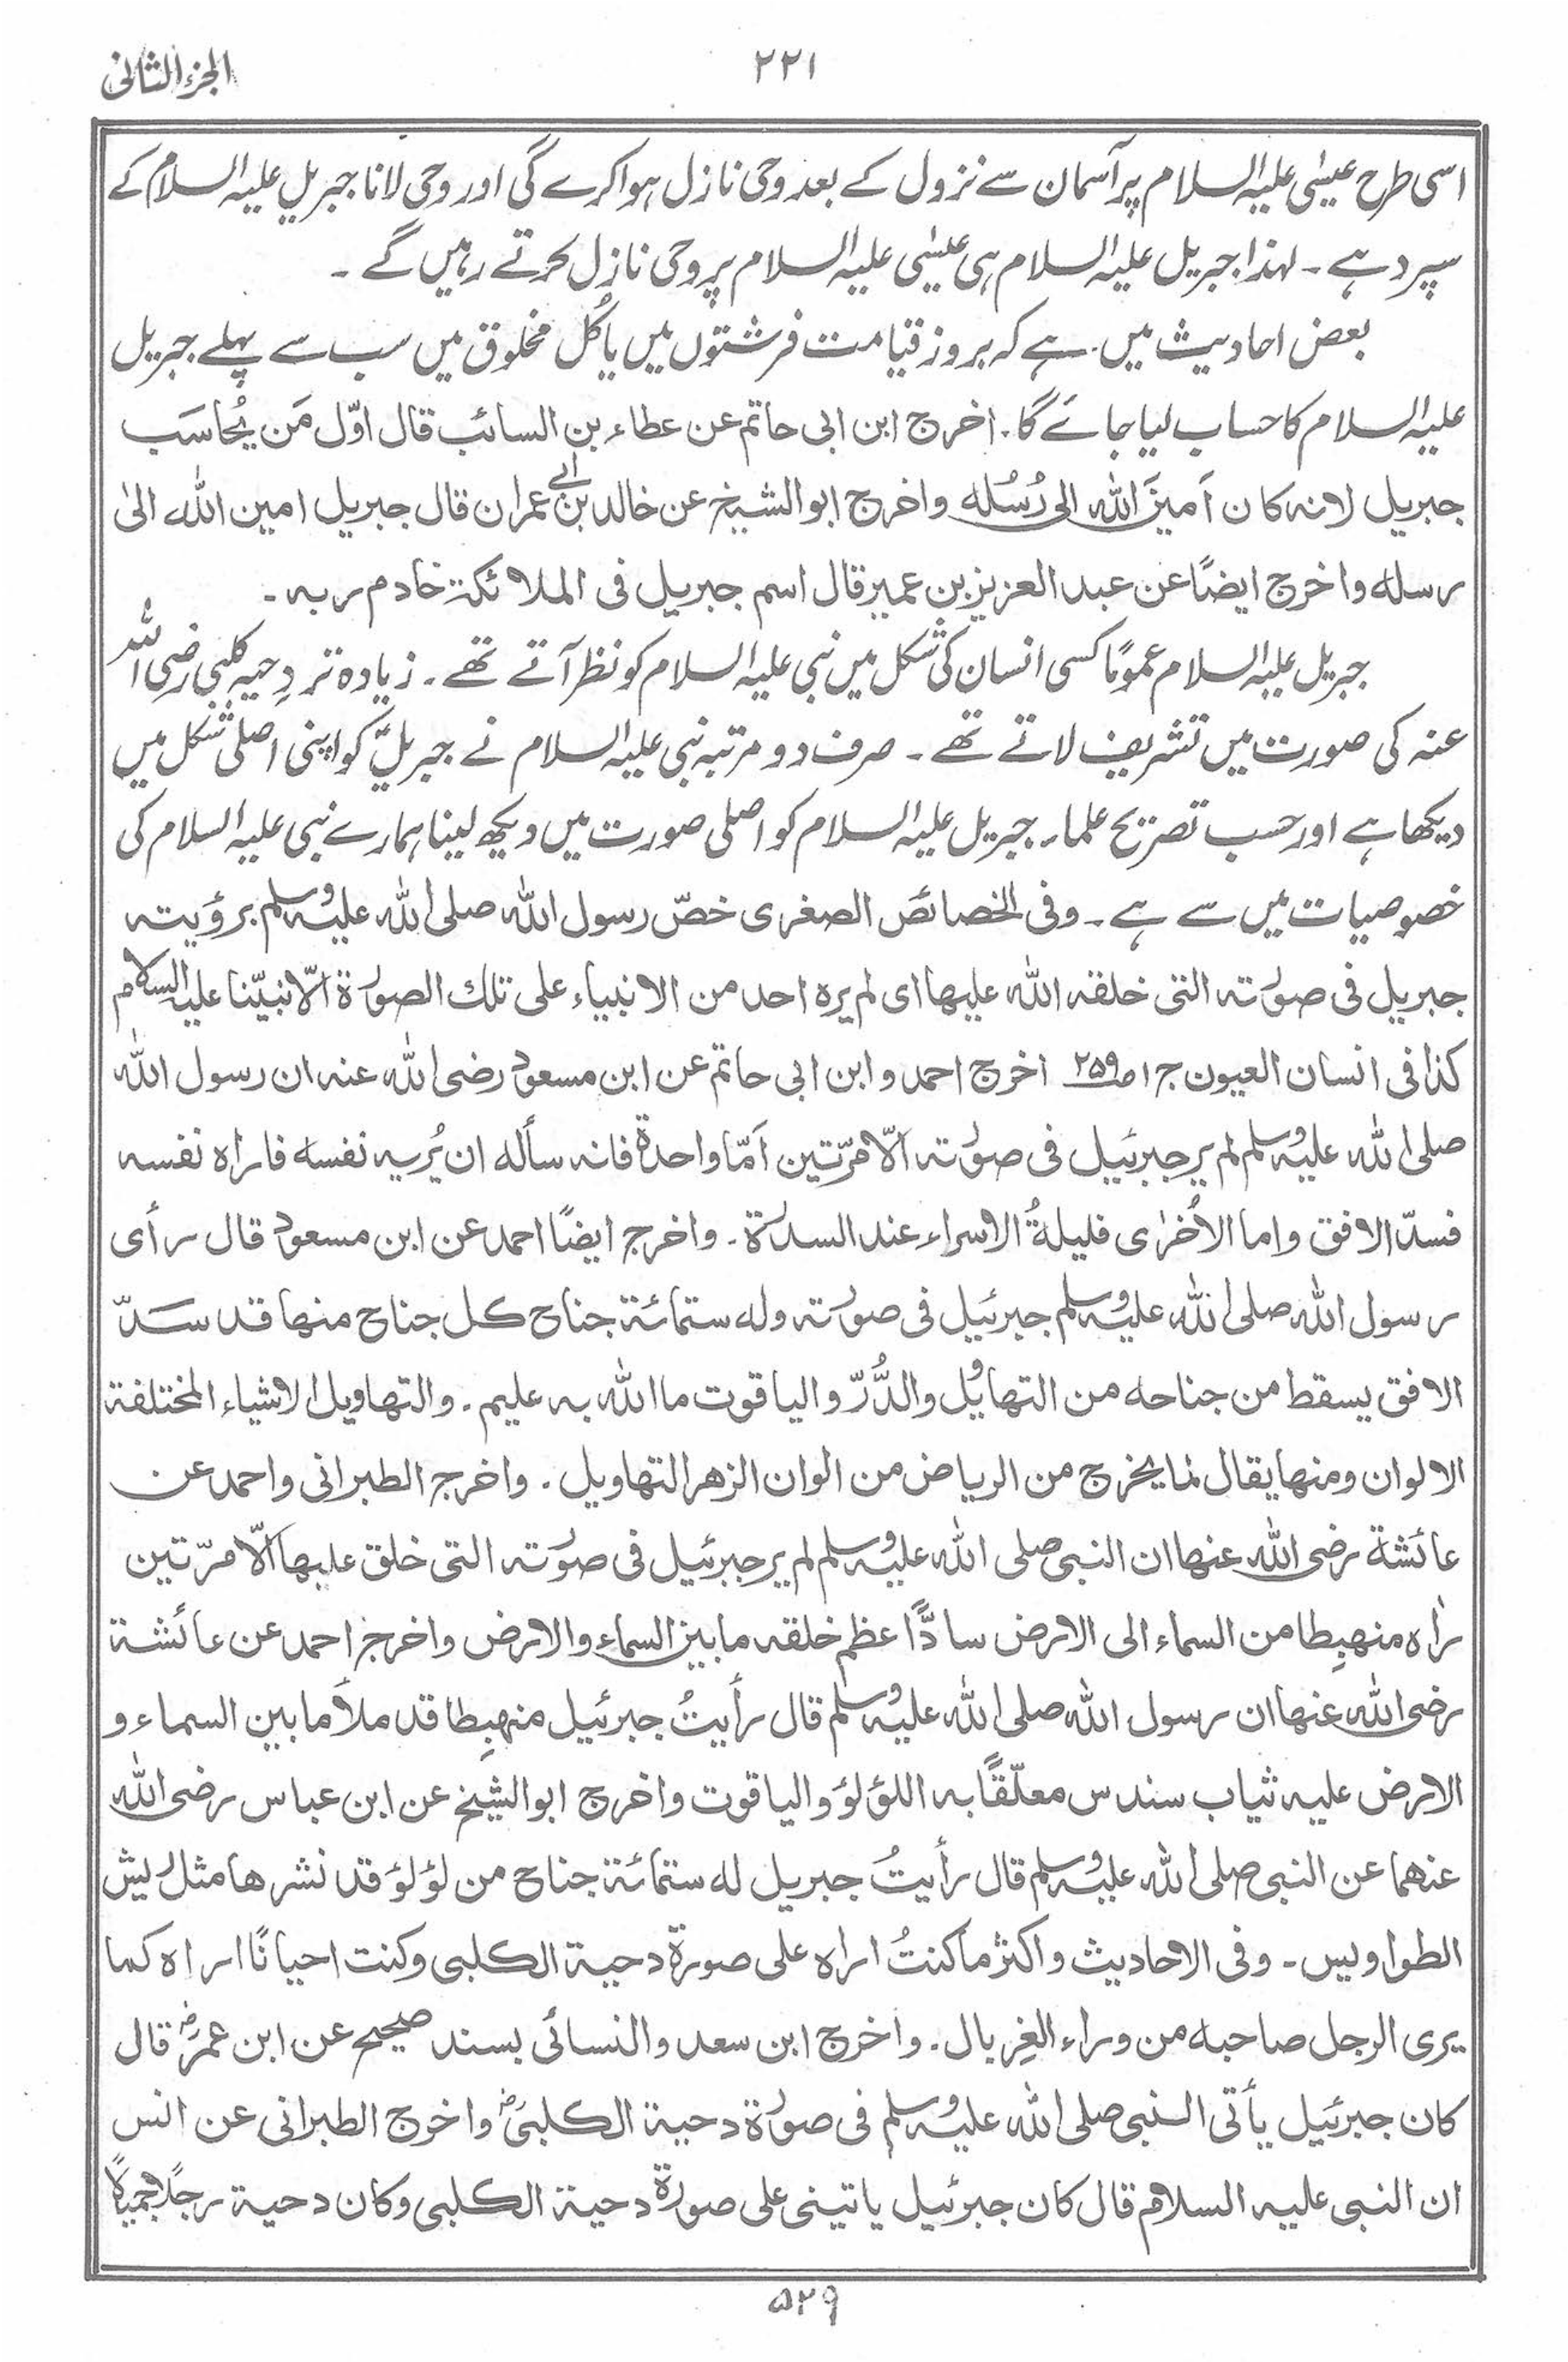 الجزء الثانی
۲۲۱
اسی طرح عیسٰی علیہ السلام پر آسمان سے نزول کے بعد وحی نازل ہوا کرے گی اور وحی لانا جبریل علیہ السلام کے
سپرد ہے ۔ لہٰذا جبریل علیہ السلام ہی عیسٰی علیہ السلام پر وحی نازل کرتے رہیں گے ۔
بعض احادیث میں ہے کہ بروز قیامت فرشتوں میں یا کُل مخلوق میں سب سے پہلے جبریل
علیہ السلام کا حساب لیا جائے گا ۔ اخرج ابن ابی حاتم عن عطاء بن السائب قال اوّل مَن یُحاسَب
جبریل لانہ کان اَمینَ اللہ الی رُسُلہ واخرج ابو الشیخ عن خالد بن ابی عمران قال جبریل امین اللہ الیٰ
رسلہ واخرج ایضًا عن عبد العزیز بن عمیر قال اسم جبریل فی الملائکۃ خادم ربہ ۔
جبریل علیہ السلام عمومًا کسی انسان کی شکل میں نبی علیہ السلام کو نظر آتے تھے ۔ زیادہ تر دِحیہ کلبی رضی اللہ
عنہ کی صورت میں تشریف لاتے تھے ۔ صرف دو مرتبہ نبی علیہ السلام نے جبریلؑ کو اپنی اصلی شکل میں
دیکھا ہے اور حسب تصریح علماء جبریل علیہ السلام کو اصلی صورت میں دیکھ لینا ہمارے نبی علیہ السلام کی
خصوصیات میں سے ہے ۔ وفی الخصائص الصغری خصّ رسول اللہ صلی اللہ علیہ وسلم برؤیتہ
جبریل فی صورتہ التی خلقہ اللہ علیہا ای لم یرہ احد من الانبیاء علی تلک الصورۃ الّا نبیّنا علیہ السلام
کذا فی انسان العیون ج۱ ص۲۵۹ اخرج احمد و ابن ابی حاتم عن ابن مسعود رضی اللہ عنہ ان رسول اللہ
صلی اللہ علیہ وسلم لم یر جبرئیل فی صورتہ الّا مرّتین اَمّا واحدۃ فانہ سألہ ان یُریہ نفسہ فاراہ نفسہ
فسدّ الافق واما الاُخرٰی فلیلۃُ الاسراء عند السدرۃ ۔ واخرج ایضًا احمد عن ابن مسعود قال رأی
رسول اللہ صلی اللہ علیہ وسلم جبرئیل فی صورتہ ولہ ستمائۃ جناح کل جناح منہا قد سَدّ
الافق یسقط من جناحہ من التهاویل والدُّرّ والیاقوت ما اللہ بہ علیم ۔ والتهاویل الاشیاء المختلفۃ
الالوان ومنہا یقال لما یخرج من الریاض من الوان الزهر التهاویل ۔ واخرج الطبرانی واحمد عن
عائشۃ رضی اللہ عنہا ان النبی صلی اللہ علیہ وسلم لم یر جبرئیل فی صورتہ التی خلق علیہا الّا مرّتین
رٰاہ منہبِطا من السماء الی الارض سادًّا عظم خلقہ ما بین السماء والارض واخرج احمد عن عائشۃ
رضی اللہ عنہا ان رسول اللہ صلی اللہ علیہ وسلم قال رأیتُ جبرئیل منہبِطا قد ملأ ما بین السماء و
الارض علیہ ثیاب سندس معلّقًا بہ اللؤلؤ والیاقوت واخرج ابو الشیخ عن ابن عباس رضی اللہ
عنہما عن النبی صلی اللہ علیہ وسلم قال رأیتُ جبریل لہ ستمائۃ جناح من لؤلؤ قد نشرها مثل ریش
الطواویس ۔ وفی الاحادیث واکثر ما کنتُ اراہ علی صورۃ دحیۃ الکلبی وکنت احیانًا اراہ کما
یری الرجل صاحبہ من وراء الغِربال ۔ واخرج ابن سعد والنسائی بسند صحیح عن ابن عمرؓ قال
کان جبرئیل یأتی النبی صلی اللہ علیہ وسلم فی صورۃ دحیۃ الکلبیؓ واخرج الطبرانی عن انس
ان النبی علیہ السلام قال کان جبرئیل یاتینی علی صورۃ دحیۃ الکلبی وکان دحیۃ رجلًا جمیلًا
۵۲۹